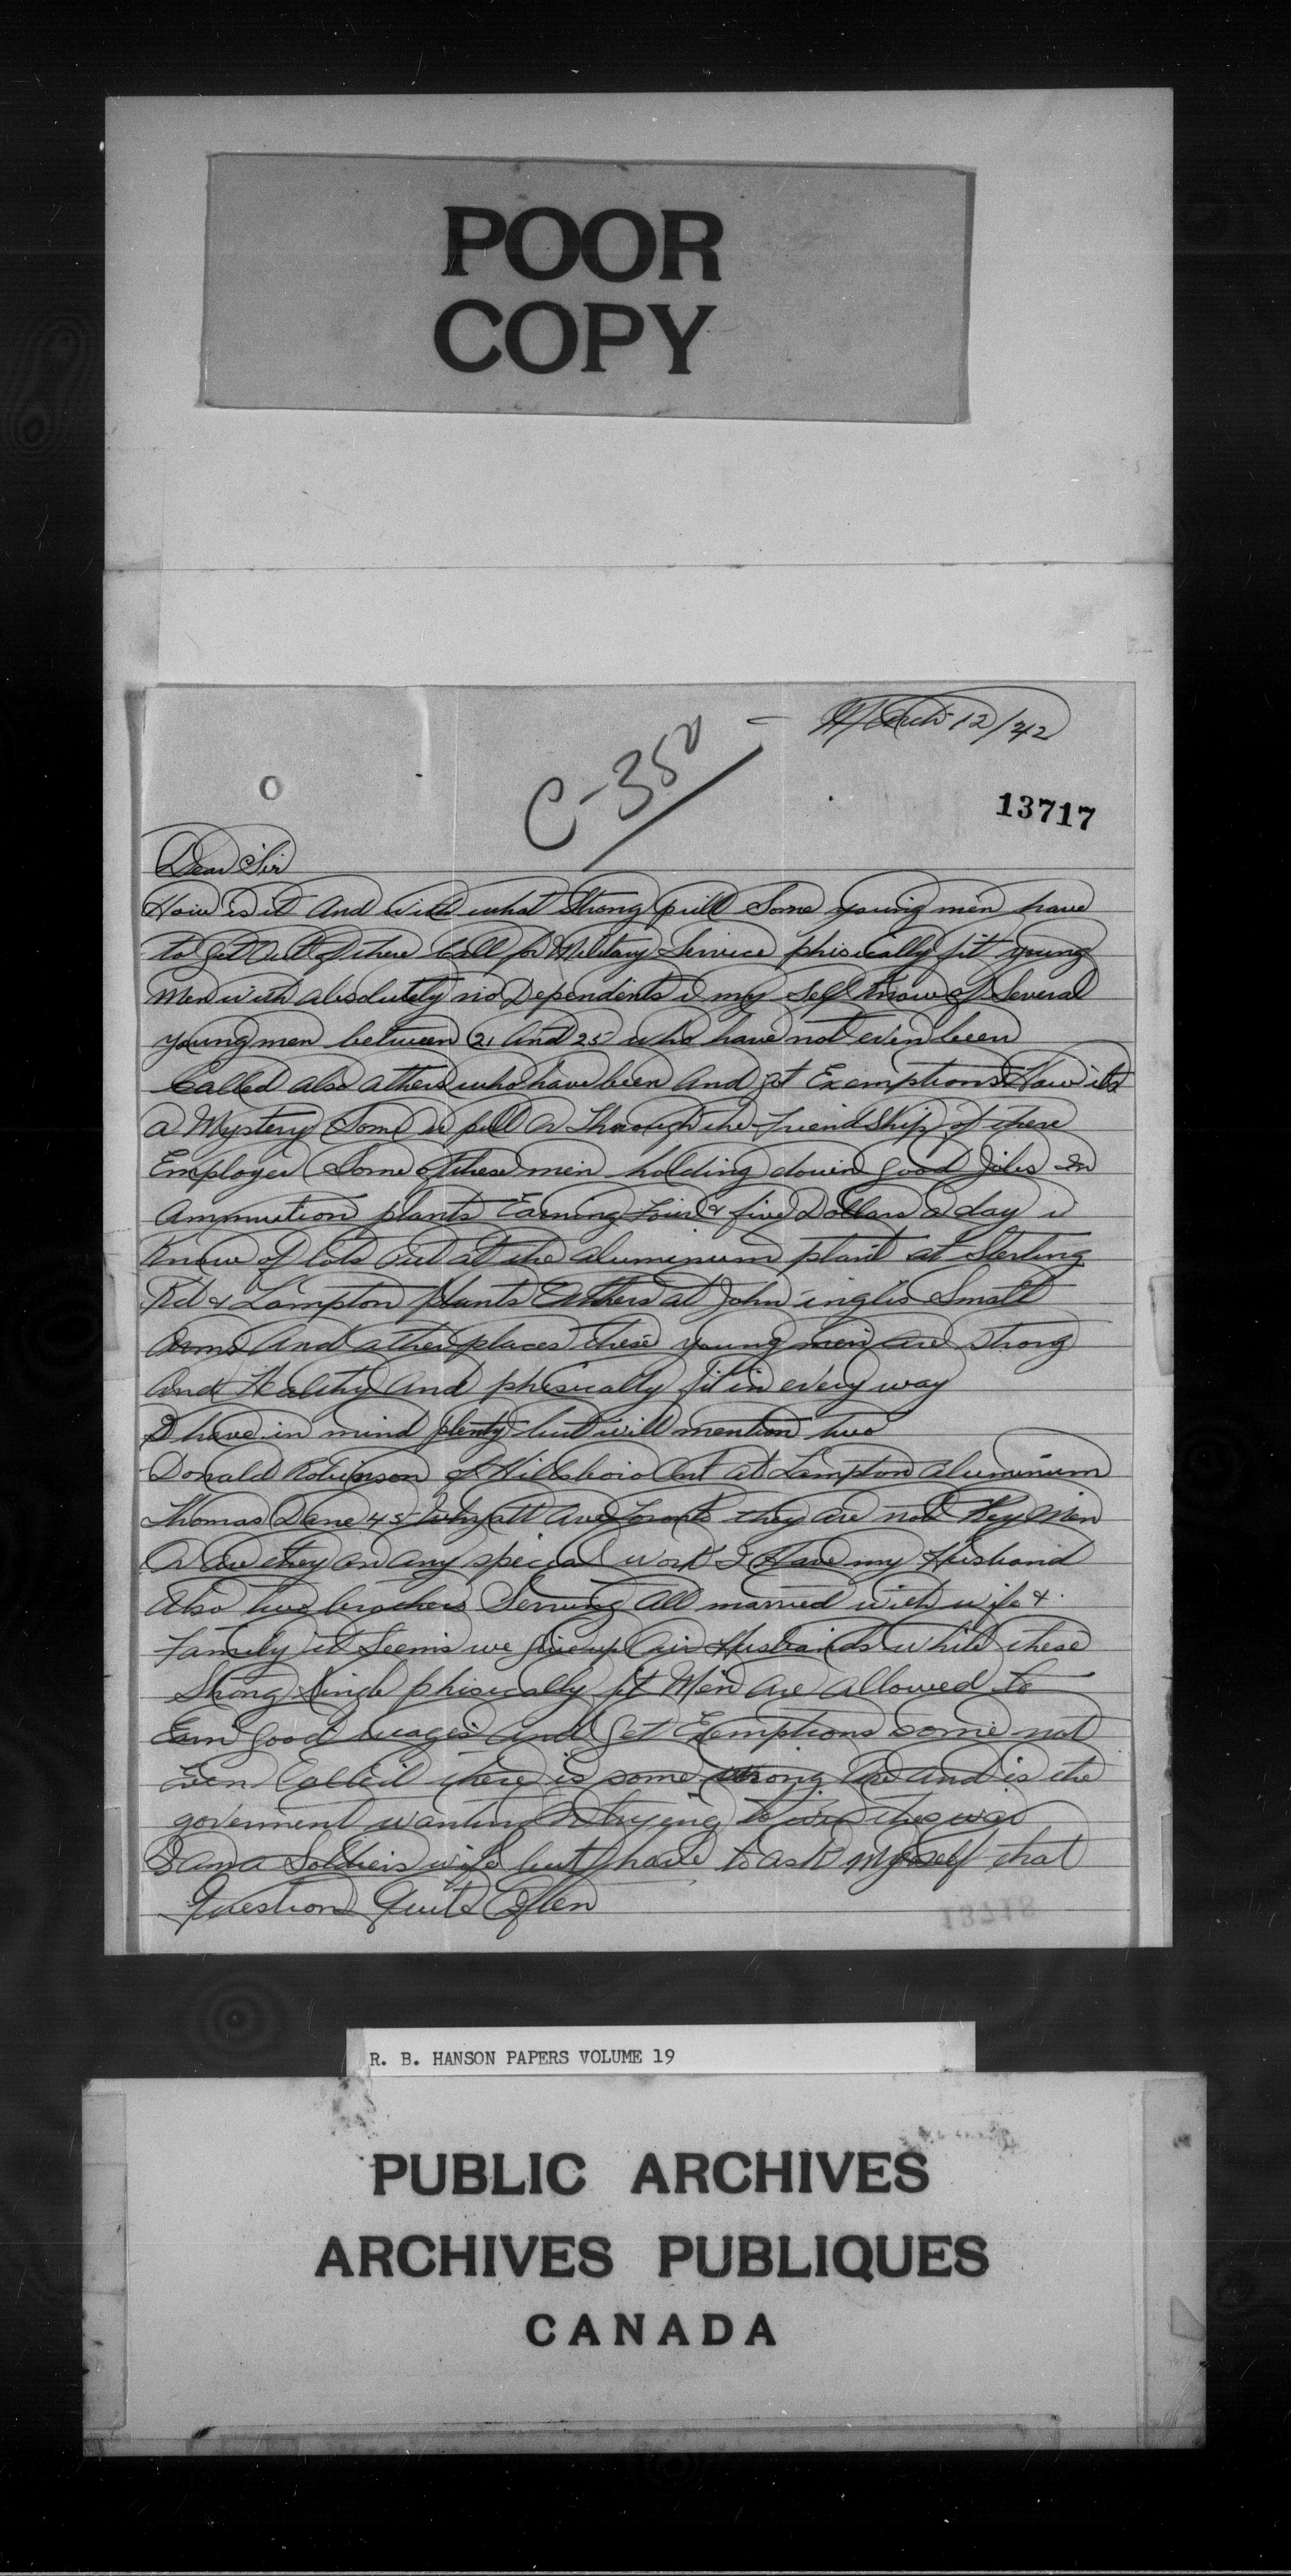 POOR
COPY
March 12/42
C-350
13717
Dear Sir
How is it And with what Strong pull Some young men have
to get out of there Call for Military Service phisically fit young
Men with absolutely no Dependents i my self know of Several
young men between 21 And 25 who have not even been
Called also others who have been And got Exemptions How its
a Mystery Some pull or Through the Friendship of there
Employer Some of these men holding down good jobs In
Ammunition plants Earning Four & five Dollars a day i
Know of lots out at the aluminum plant at Sterling
Rd & Lampton plants Others at John inglis Small
Arms And other places these young men are strong
And Healthy And phisically fit in every way
I have in mind plenty but will mention two
Donald Robinson of Hillsboro at Lampton aluminium
Thomas Dane 45 Ave Toronto they are not Key Men
Or are they on any special work I Have my Husband
Also two brothers Serving All married with wife &
Family it Seems we give up Our Husbands while these
Strong Single phisically fit Men are allowed to
Earn good wages and get Exemptions some not
Even Called there is some wrong and is the
goverment wanting or trying to win this war
I am a Soldiers wife but have to ask Myself that
Question Quite Often
13718
R. B. HANSON PAPERS VOLUME 19
PUBLIC ARCHIVES
ARCHIVES PUBLIQUES
CANADA